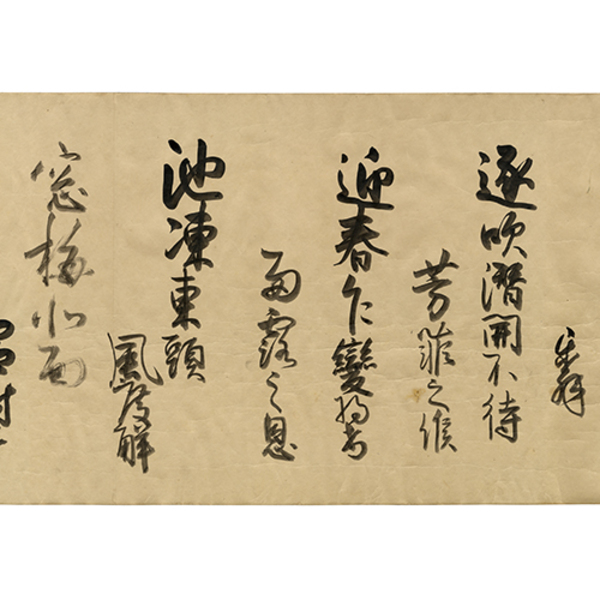 逐吹潜開不待
芳菲之候
迎春乍變将希
雨露之恩
池凍東頭
風度解
窓梅北面